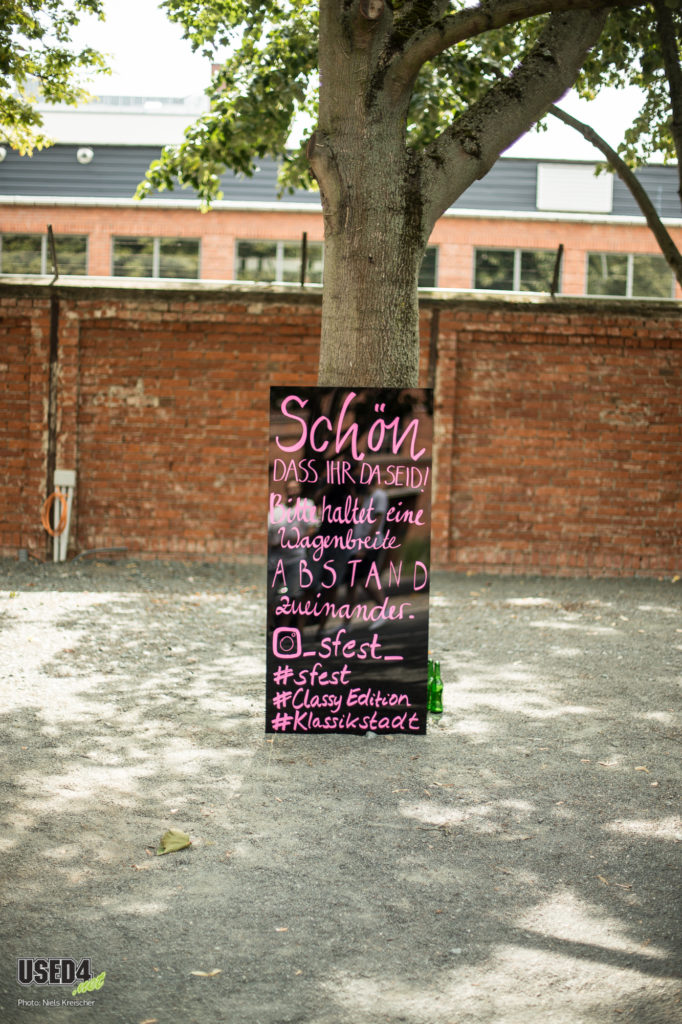 Schön
DASS IHR DA SEID!
Bitte haltet eine
Wagenbreite
ABSTAND
zueinander.
_sfest_
#sfest
#Classy Edition
#Klassikstadt
USED4
.net
Photo: Niels Kreischer